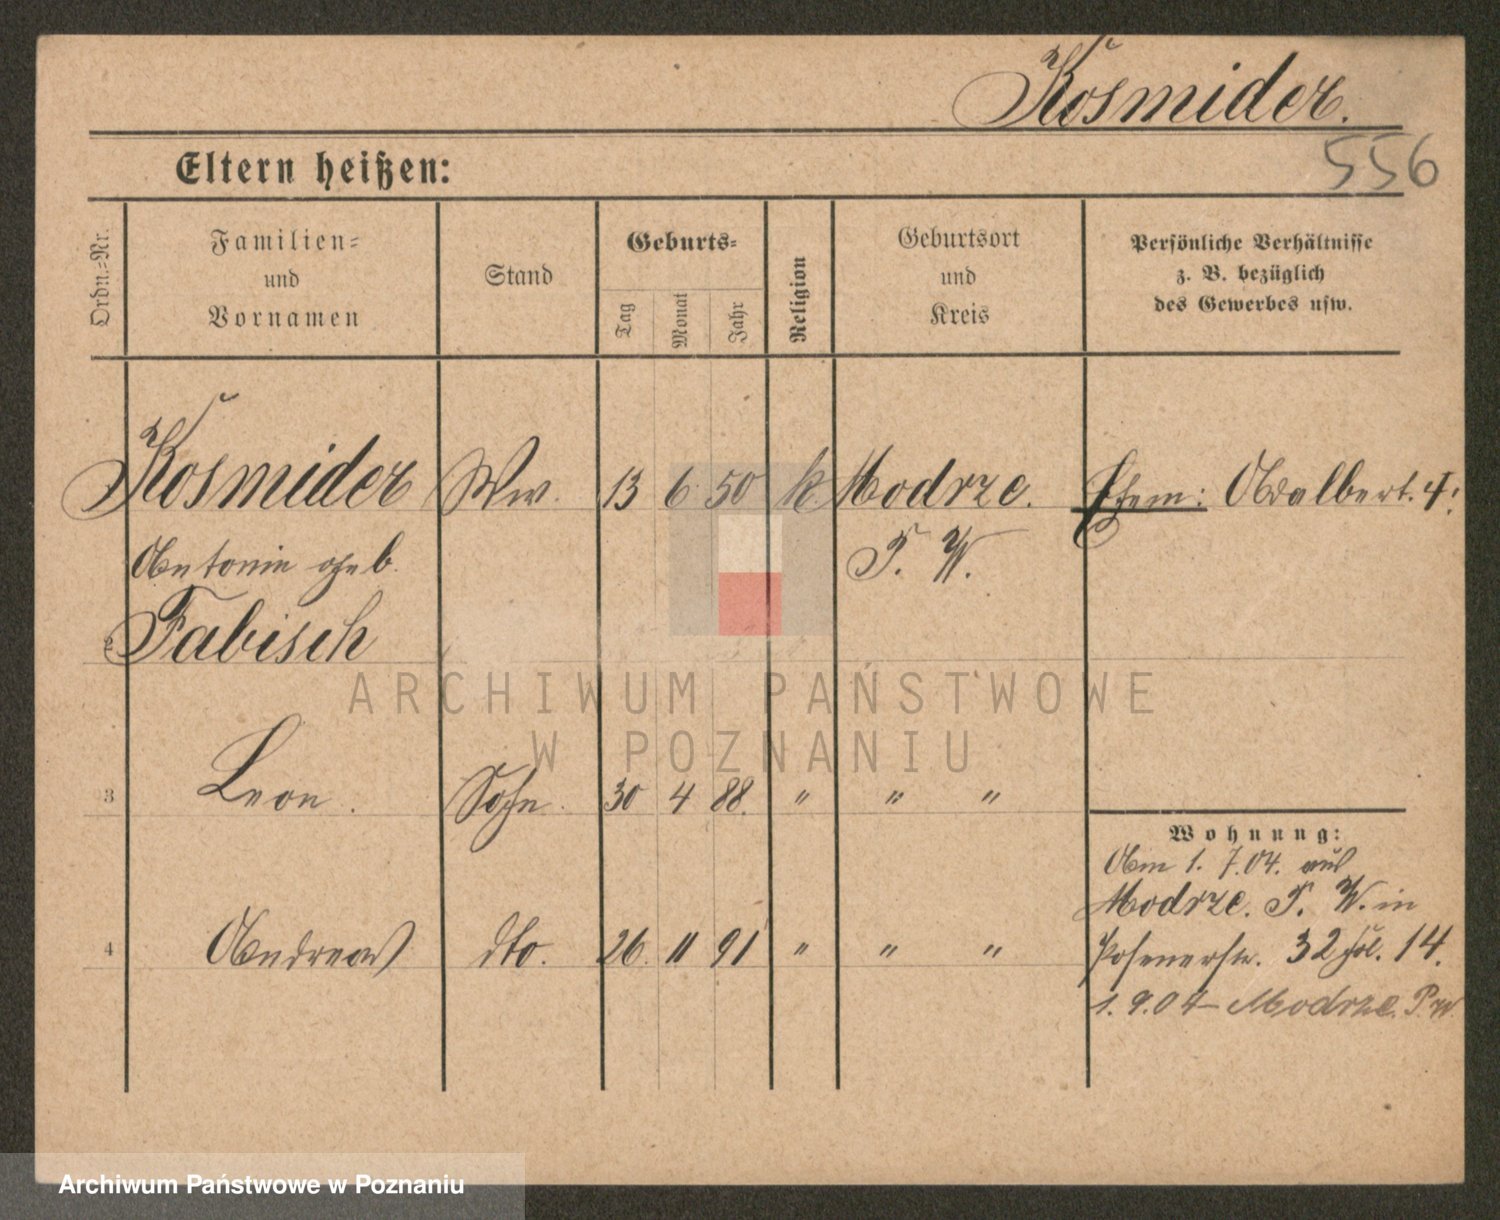 Kosmider.
556
Eltern heißen:
Ordn.=Nr.
Familien=
und
Vornamen
Stand
Geburts=
Tag
Monat
Jahr
Religion
Geburtsort
und
Kreis
Persönliche Verhältnisse
z. B. bezüglich
des Gewerbes usw.
Kosmider Ww. 13 6 50 k. Modrze. Ehem: Adalbert. †.
Antonie geb. P. W.
2 Fabisch
ARCHIWUM PAŃSTWOWE
W POZNANIU
3 Leon. Sohn. 30 4 88. " " "
Wohnung:
Am 1. 7. 04. aus
Modrze. P. W. in
4 Andreas dto. 26. 11 91 " " "
Posenerstr. 32 14.
1. 9. 04 Modrze. P. W.
Archiwum Państwowe w Poznaniu